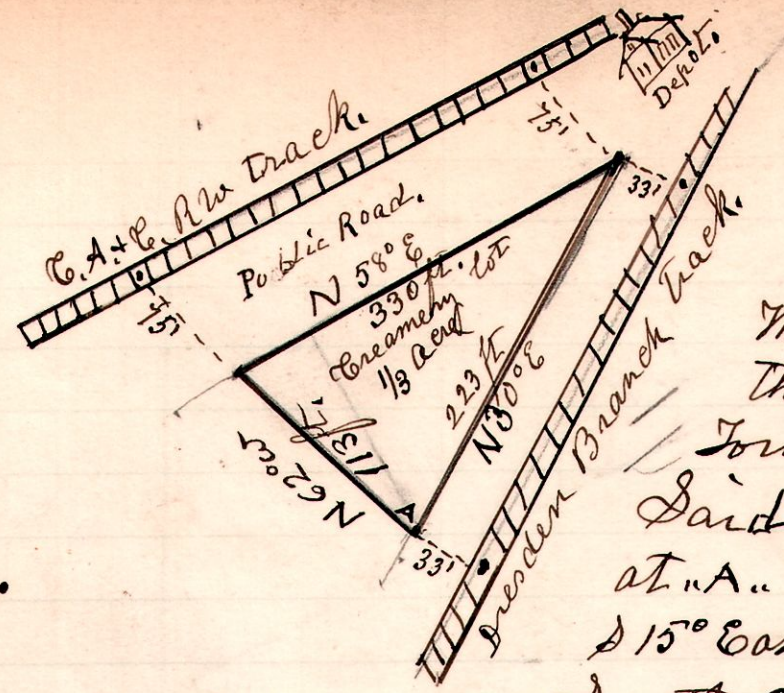 Depot.
C. A. & C. Rw Track.
75'
33'
Public Road.
N 58° E
330 ft.
Creamery lot
1/3 acre
75'
223 ft
N 30° E
113 ft.
N 62° W
A
33'
Dresden Branch Track.
Said
at "A"
S 15° Eas